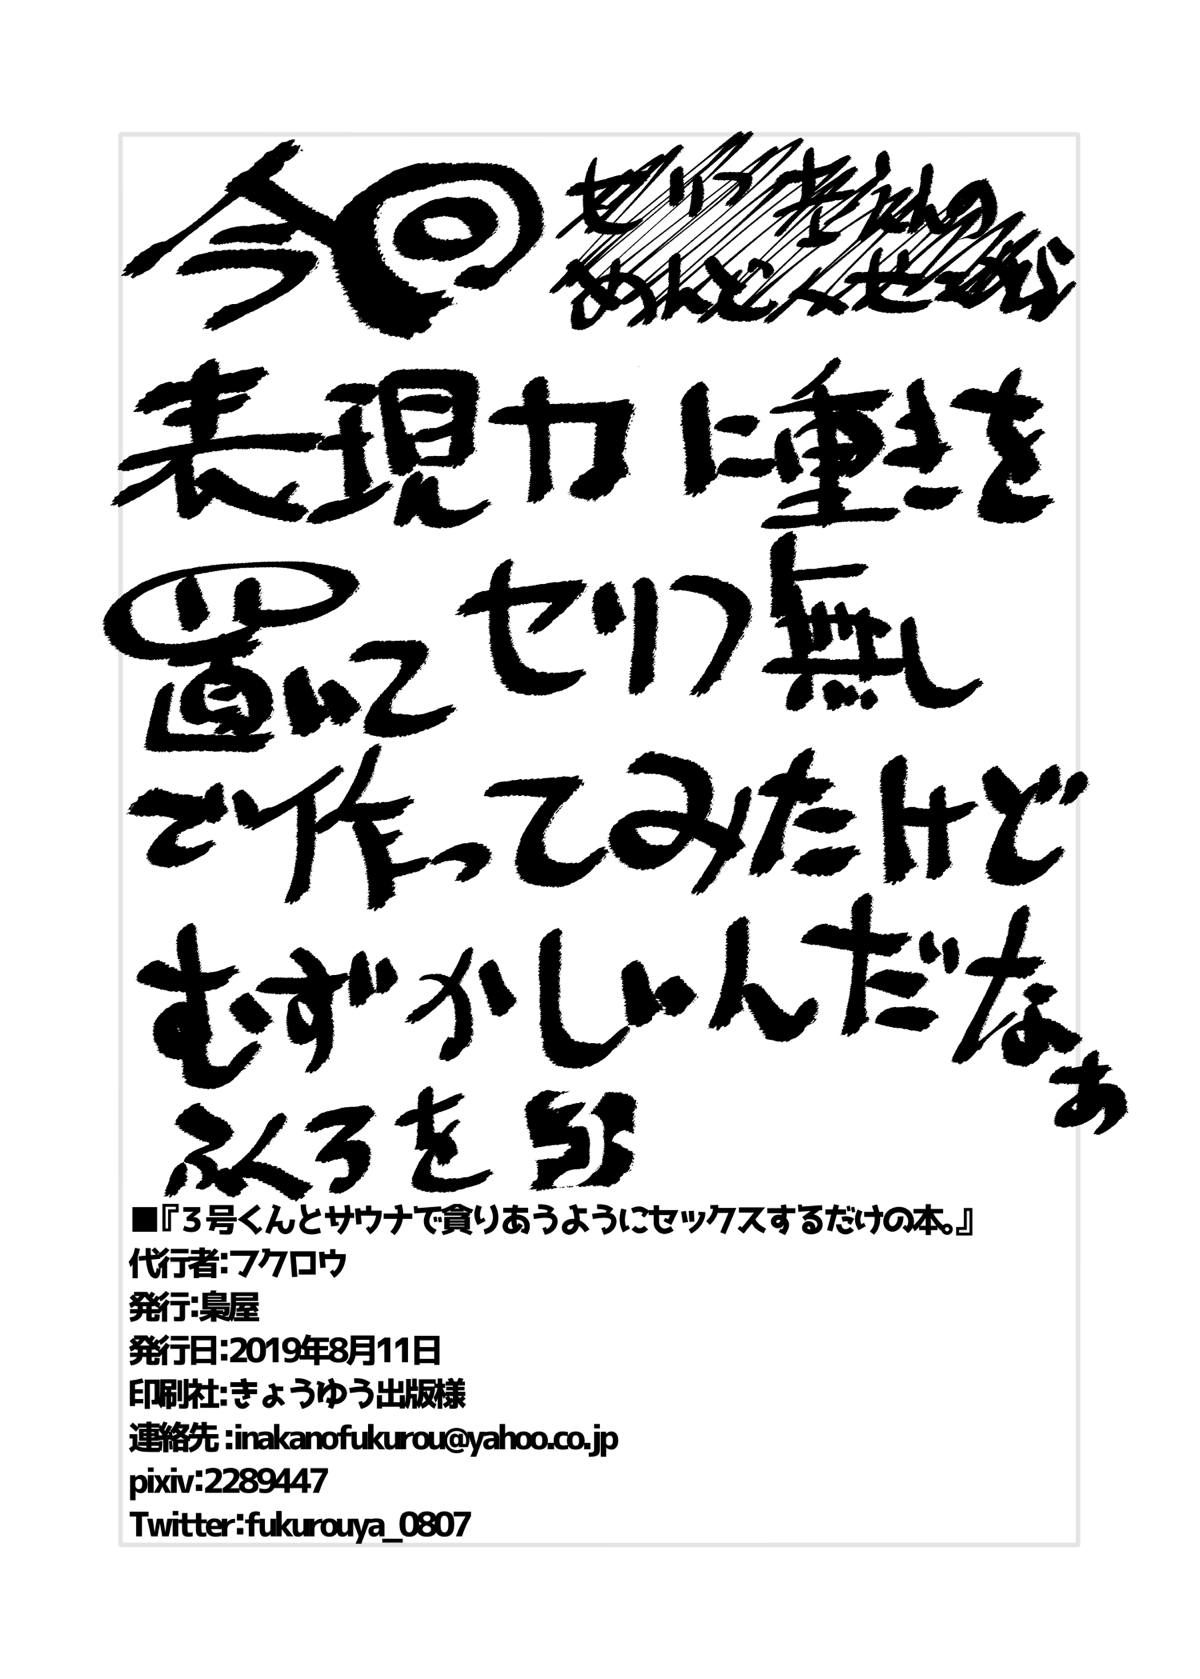 今回 セリフ考えんの
めんどくせーから
表現力に重きを
置いてセリフ無し
で作ってみたけど
むずかしいんだなぁ
ふくろを
■『3号くんとサウナで貪りあうようにセックスするだけの本。』
代行者:フクロウ
発行:梟屋
発行日:2019年8月11日
印刷社:きょうゆう出版様
連絡先:inakanofukurou@yahoo.co.jp
pixiv:2289447
Twitter:fukurouya_0807